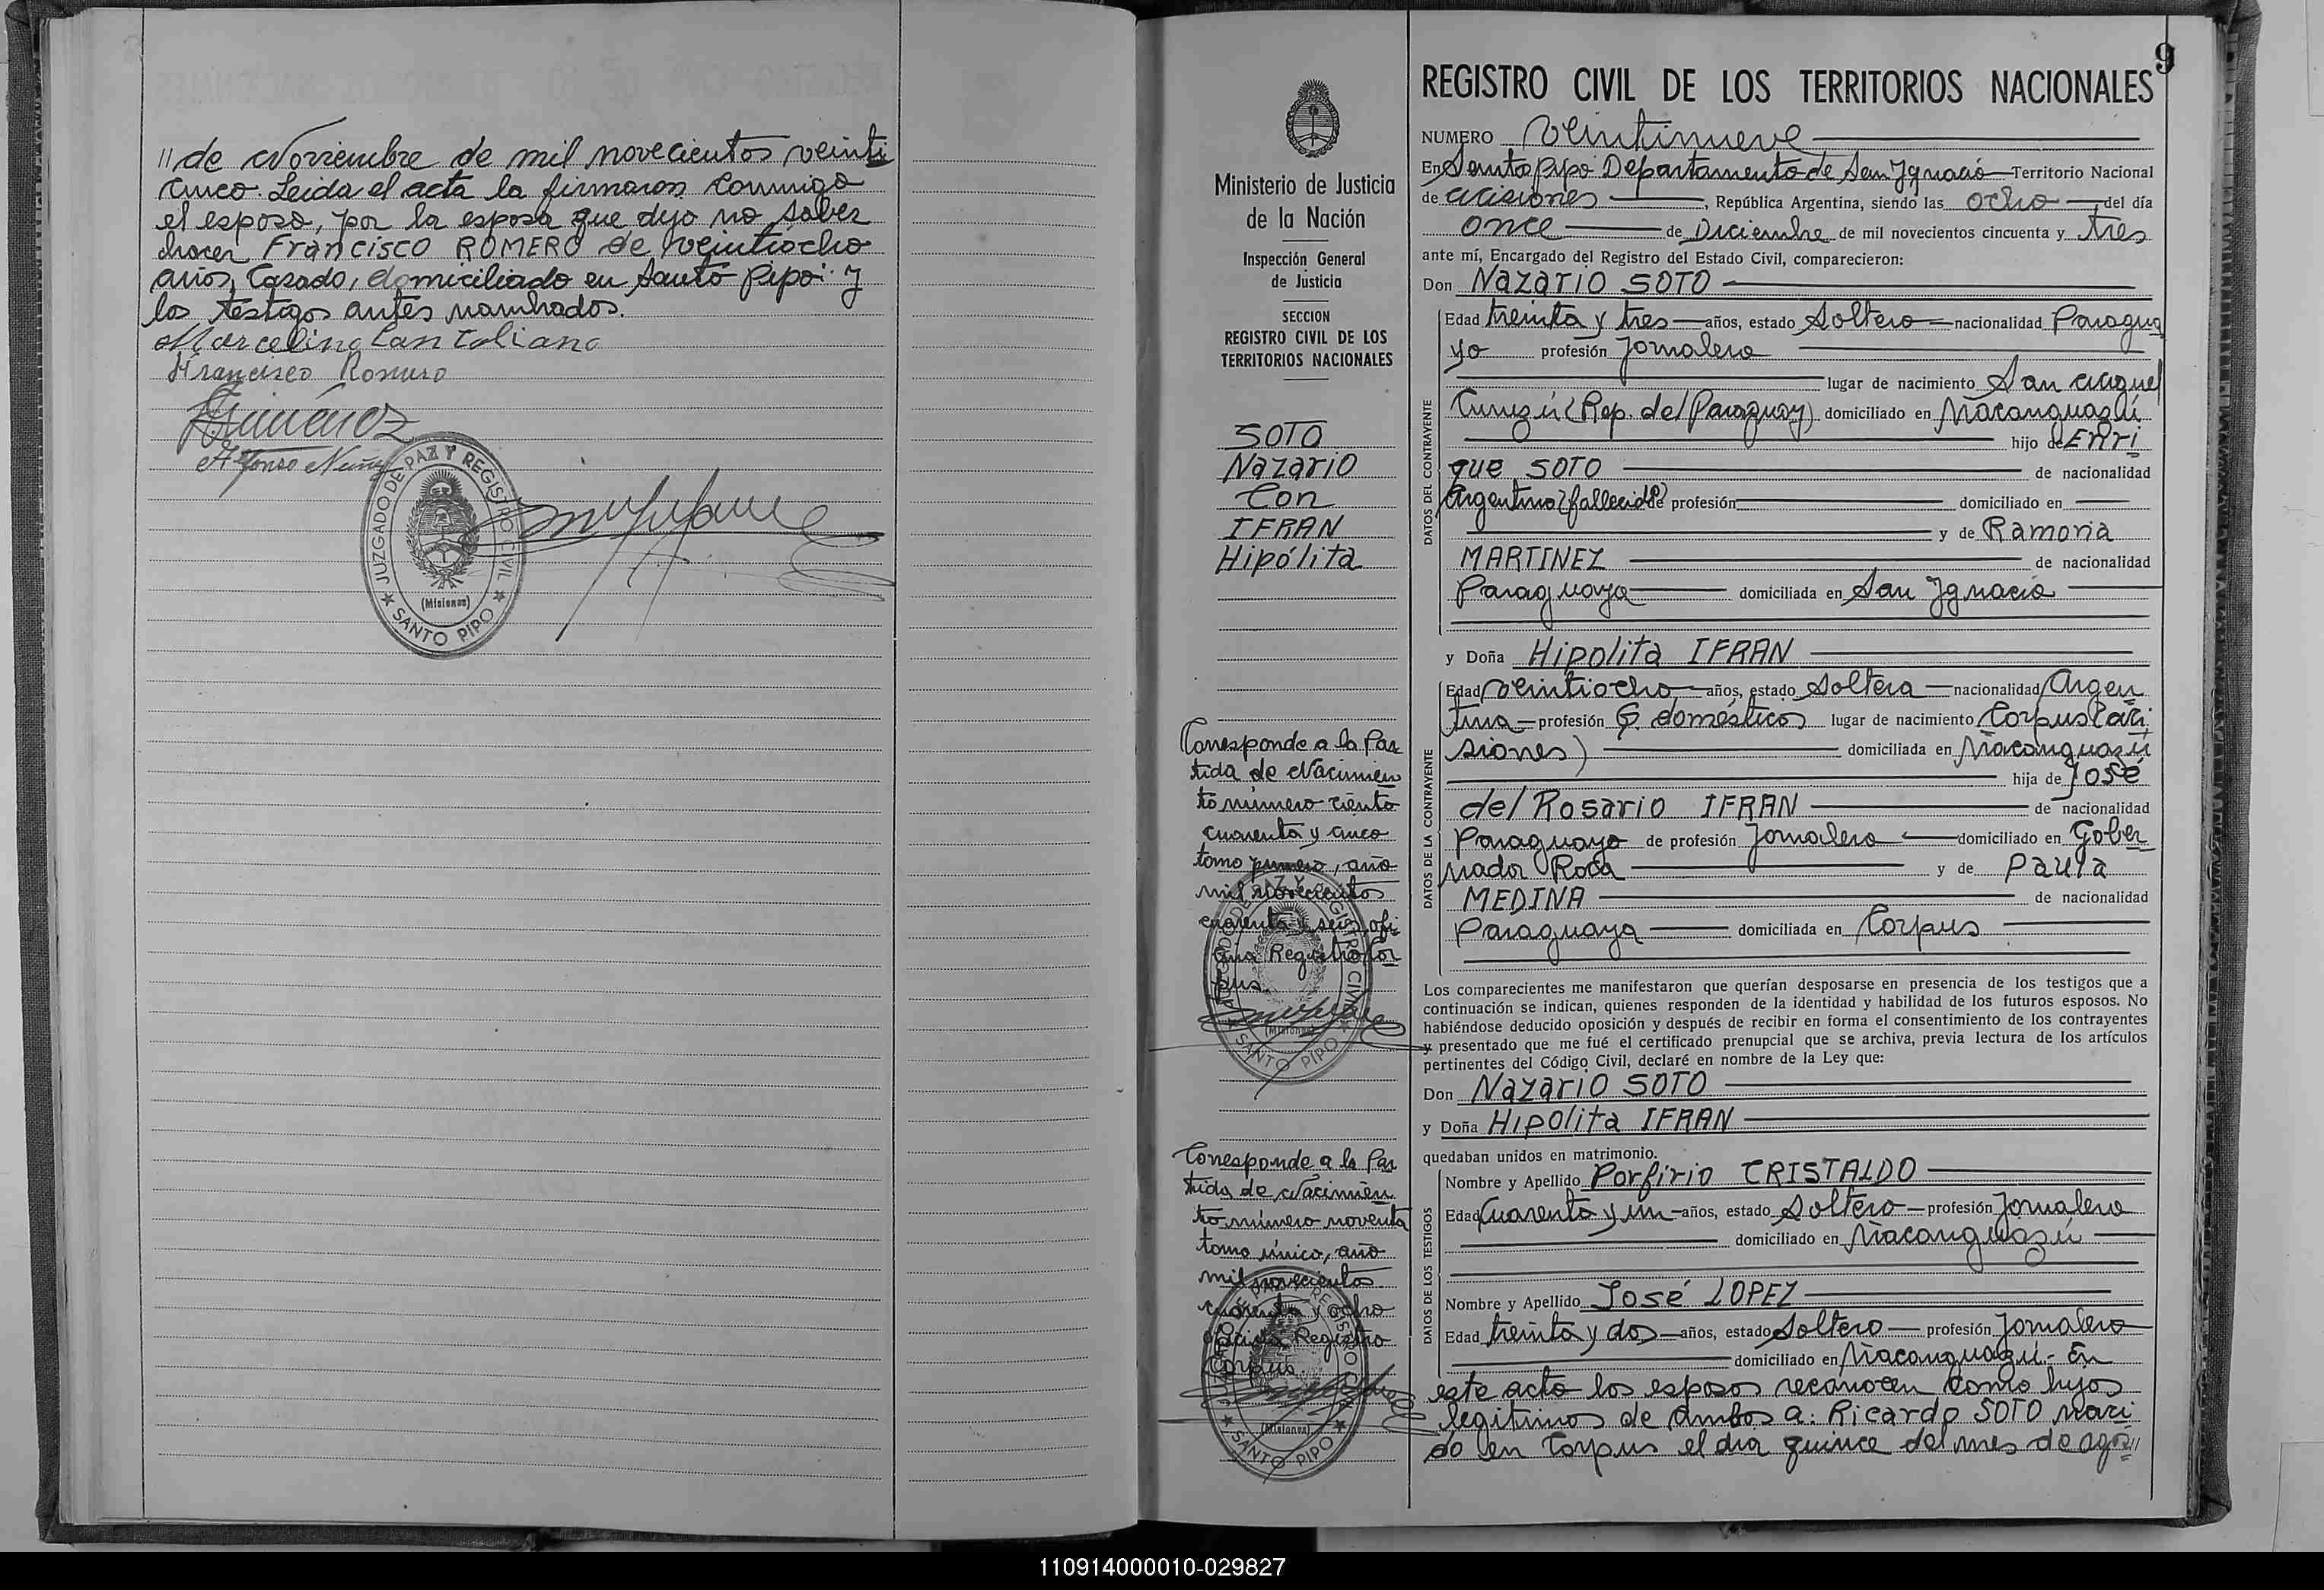 // de Noviembre de mil novecientos veinti
cinco. Leida el acta la firmaron conmigo
el esposo, por la esposa que dijo no saber
hacer Francisco ROMERO de veintiocho
años, casado, domiciliado en Santo Pipó: y
los testigos antes nombrados.
Marcelino
Francisco Romero
Alfonso Nuñez
JUZGADO DE PAZ Y REGISTRO CIVIL
(Misiones)
SANTO PIPO
9
Ministerio de Justicia
de la Nación
Inspección General
de Justicia
SECCION
REGISTRO CIVIL DE LOS
TERRITORIOS NACIONALES
SOTO
Nazario
Con
IFRAN
Hipólita
Corresponde a la Par
tida de Nacimien
to número ciento
cuarenta y cinco
tomo primero, año
mil novecientos
cuarenta y seis, ofi
cina Registro Cor
pus.
JUZGADO DE PAZ Y REGISTRO CIVIL
(Misiones)
SANTO PIPO
Corresponde a la Par
tida de Nacimien
to número noventa
tomo único, año
mil novecientos
cuarenta y ocho
oficina Registro
Corpus.
JUZGADO DE PAZ Y REGISTRO CIVIL
(Misiones)
SANTO PIPO
REGISTRO CIVIL DE LOS TERRITORIOS NACIONALES
NUMERO Veintinueve
En Santo Pipó Departamento de San Ignacio Territorio Nacional
de Misiones, República Argentina, siendo las ocho del día
once de Diciembre de mil novecientos cincuenta y tres
ante mí, Encargado del Registro del Estado Civil, comparecieron:
Don Nazario SOTO
DATOS DEL CONTRAYENTE
Edad treinta y tres años, estado Soltero nacionalidad Paragua
yo profesión Jornalero
lugar de nacimiento San Miguel
Curuzú (Rep. del Paraguay) domiciliado en Ñacanguazú
hijo de Enri
que SOTO de nacionalidad
Argentino (fallecido) de profesión domiciliado en
y de Ramona
MARTINEZ de nacionalidad
Paraguaya domiciliada en San Ignacio
y Doña Hipolita IFRAN
DATOS DE LA CONTRAYENTE
Edad veintiocho años, estado Soltera nacionalidad Argen
tina profesión Q. domésticos lugar de nacimiento Corpus (Mi
siones) domiciliada en Ñacanguazú
hija de José
del Rosario IFRAN de nacionalidad
Paraguayo de profesión Jornalero domiciliado en Gober
nador Roca y de Paula
MEDINA de nacionalidad
Paraguaya domiciliada en Corpus
Los comparecientes me manifestaron que querían desposarse en presencia de los testigos que a
continuación se indican, quienes responden de la identidad y habilidad de los futuros esposos. No
habiéndose deducido oposición y después de recibir en forma el consentimiento de los contrayentes
y presentado que me fué el certificado prenupcial que se archiva, previa lectura de los artículos
pertinentes del Código Civil, declaré en nombre de la Ley que:
Don Nazario SOTO
y Doña Hipolita IFRAN
quedaban unidos en matrimonio.
DATOS DE LOS TESTIGOS
Nombre y Apellido Porfirio CRISTALDO
Edad Cuarenta y un años, estado Soltero profesión Jornalero
domiciliado en Ñacanguazú
Nombre y Apellido José LOPEZ
Edad treinta y dos años, estado Soltero profesión Jornalero
domiciliado en Ñacanguazú.- En
este acto los esposos reconocen como hijos
legitimos de ambos a: Ricardo SOTO naci
do en Corpus el día quince del mes de agos//
110914000010-029827